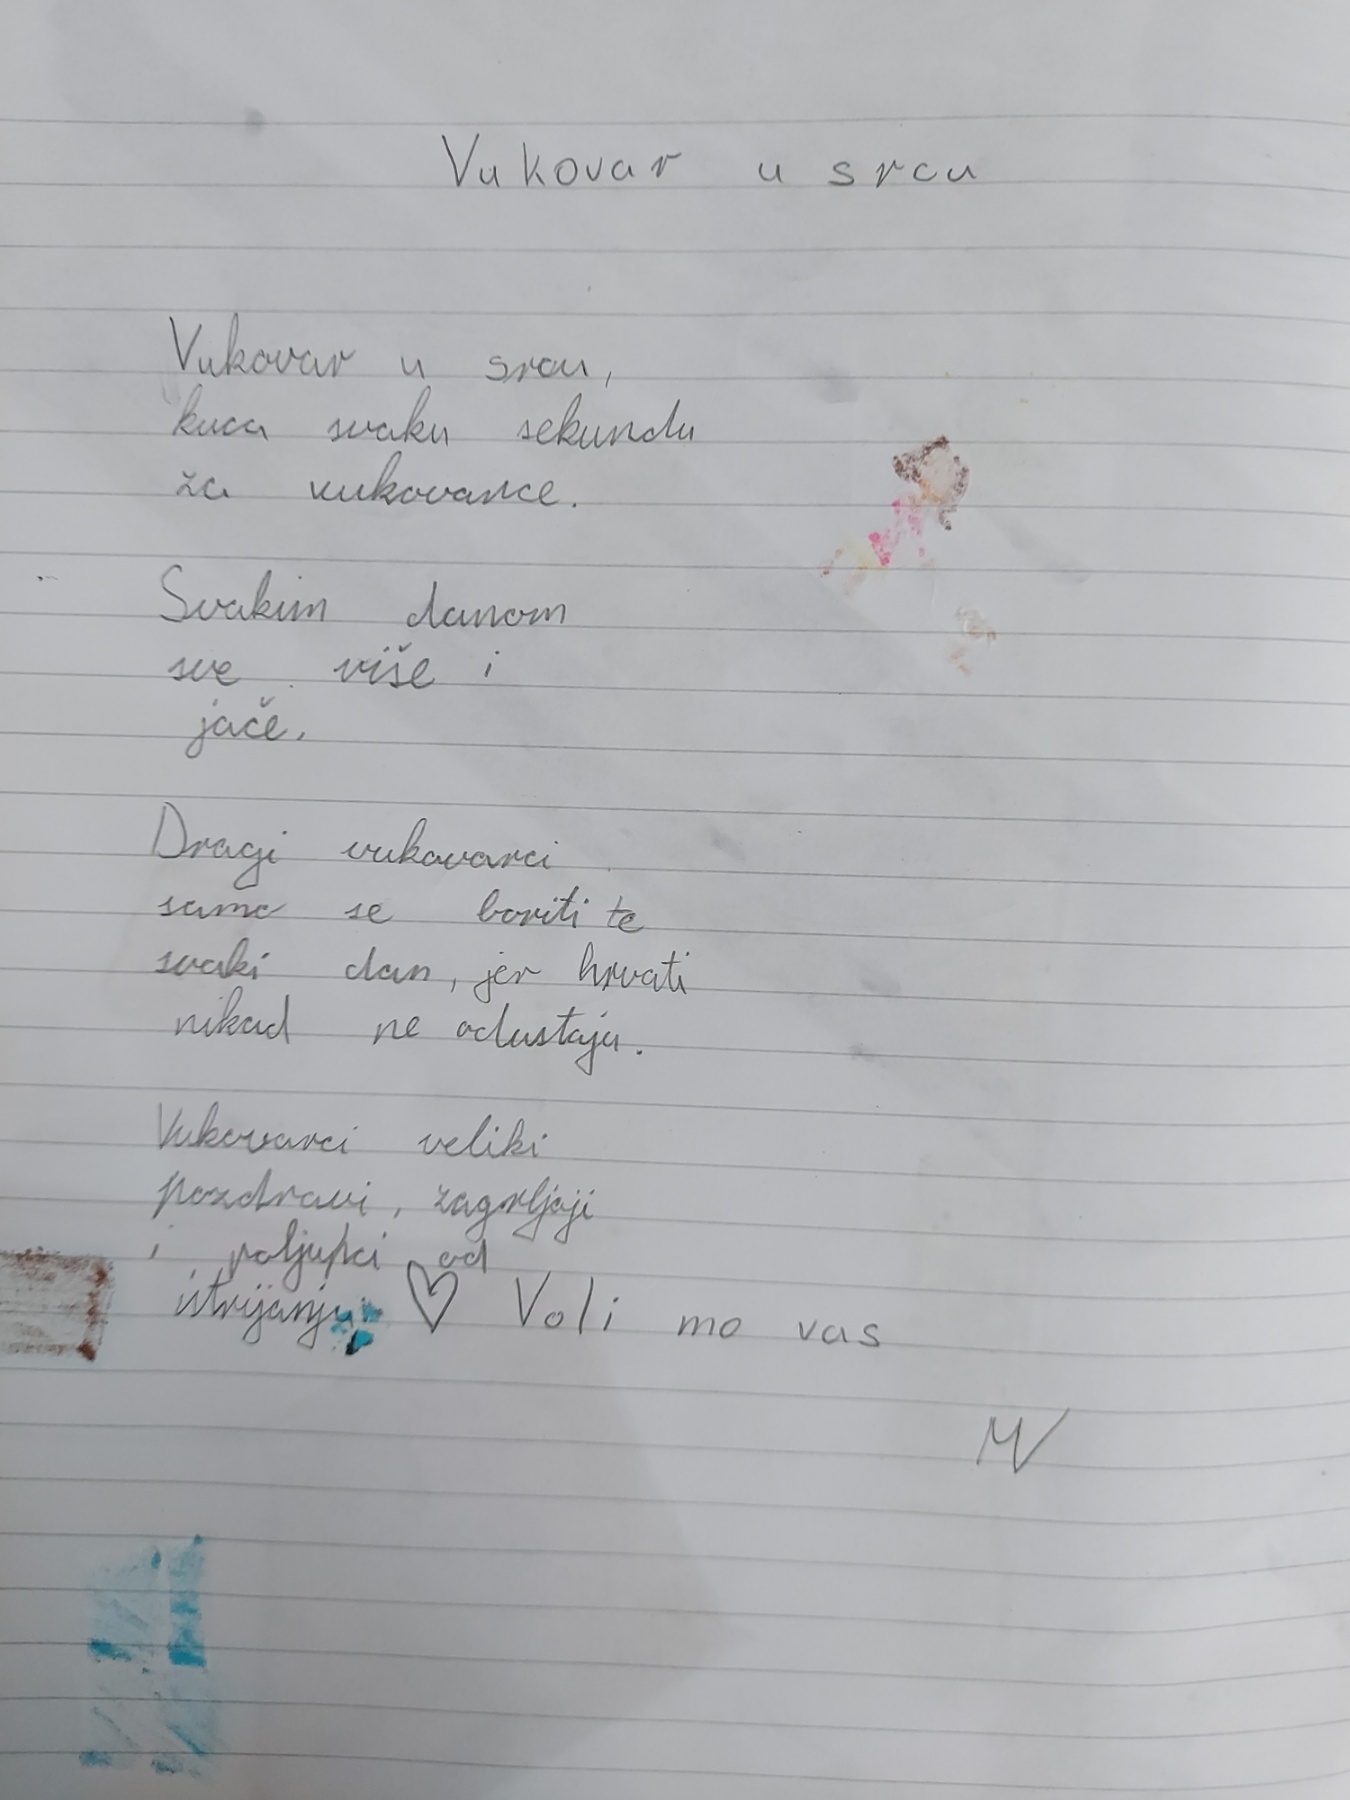 Vukovar u srcu
Vukovar u srcu,
kuca svaku sekundu
za vukovarce.
Svakim danom
sve više i
jače.
Dragi vukovarci
samo se boriti te
svaki dan, jer hrvati
nikad ne odustaju.
Vukovarci veliki
pozdravi, zagrljaji
i poljupci od
istrijanju ♡ Voli mo vas
MV